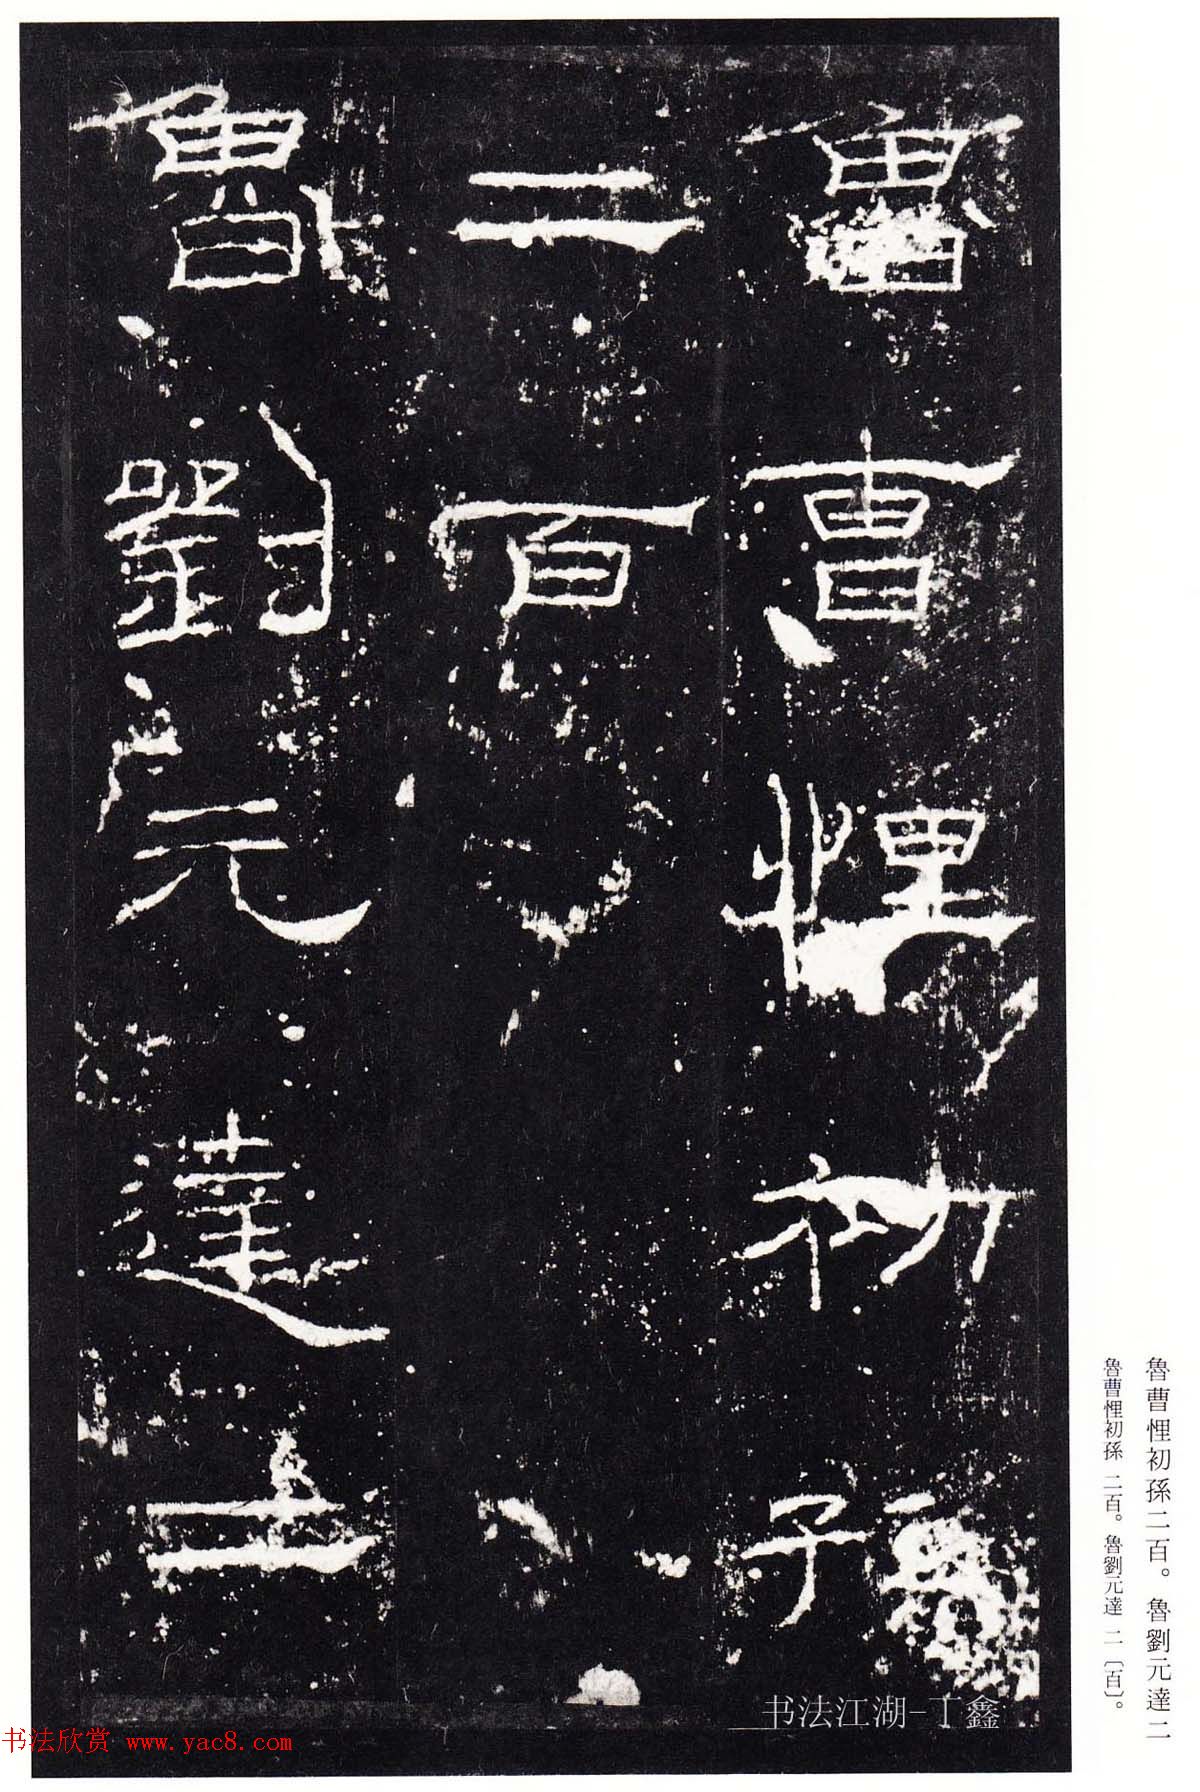 魯曹悝初孫
二百
魯劉元達二
魯曹悝初孫二百。魯劉元達二
魯曹悝初孫 二百。魯劉元達 二〔百〕。
书法江湖-丁鑫
书法欣赏 www.yac8.com